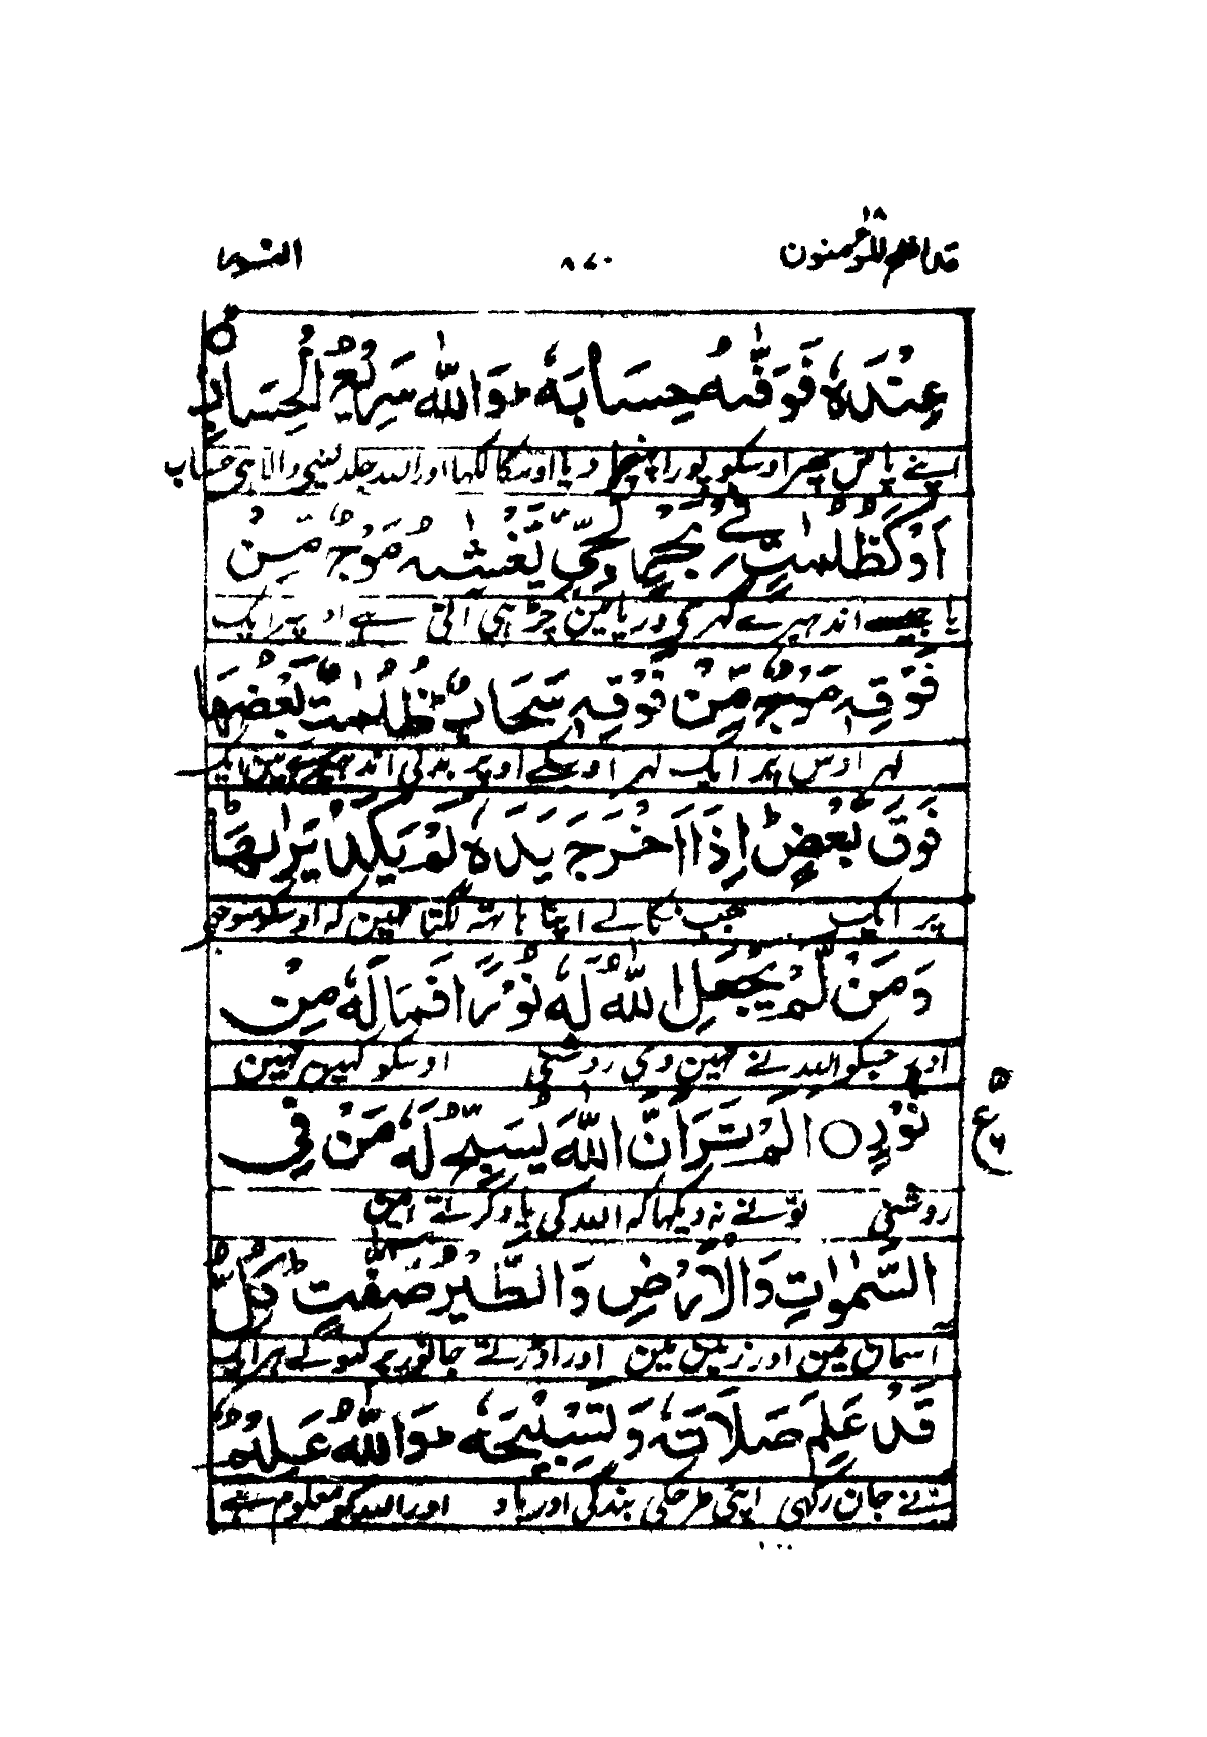 قد افلح المؤمنون ١٨ ٨٧٠ النور
عِنْدَهٗ فَوَفّٰىهُ حِسَابَهٗ ؕ وَاللّٰهُ سَرِيْعُ الْحِسَابِ ○
اپنے پاس پھر اوسکو پورا پہنچا دیا اوسکا لکھا اور اللہ جلد لینے والا ہی حساب
اَوْ كَظُلُمٰتٍ فِيْ بَحْرٍ لُّجِّيٍّ يَّغْشٰىهُ مَوْجٌ مِّنْ
یا جیسے اندہیرے گہری دریا مین چڑہی آتی ہے اوپر ایک
فَوْقِهٖ مَوْجٌ مِّنْ فَوْقِهٖ سَحَابٌ ؕ ظُلُمٰتٌ بَعْضُهَا
لہر اوس پر ایک لہر اوسکے اوپر بدلی اندہیرے ہین ایک
فَوْقَ بَعْضٍ ؕ اِذَا اَخْرَجَ يَدَهٗ لَمْ يَكَدْ يَرٰىهَا ؕ
پر ایک جب نکالے اپنا ہاتہہ لگتا نہین کہ اوسکو سوجھے
وَمَنْ لَّمْ يَجْعَلِ اللّٰهُ لَهٗ نُوْرًا فَمَا لَهٗ مِنْ
اور جسکو اللہ نے نہین دی روشنی اوسکو کہین نہین
نُّوْرٍ ○ اَلَمْ تَرَ اَنَّ اللّٰهَ يُسَبِّحُ لَهٗ مَنْ فِي
ع
روشنی تو نے نہ دیکہا کہ اللہ کی یاد کرتے ہین
السَّمٰوٰتِ وَالْاَرْضِ وَالطَّيْرُ صٰٓفّٰتٍ ؕ كُلٌّ
آسمان مین اور زمین مین اور اوڑتے جانور پر کہولے ہر ایک
قَدْ عَلِمَ صَلَاتَهٗ وَتَسْبِيْحَهٗ ؕ وَاللّٰهُ عَلِيْمٌ
نے جان رکہی اپنی طرحکی بندگی اور یاد اور اللہ کو معلوم ہے